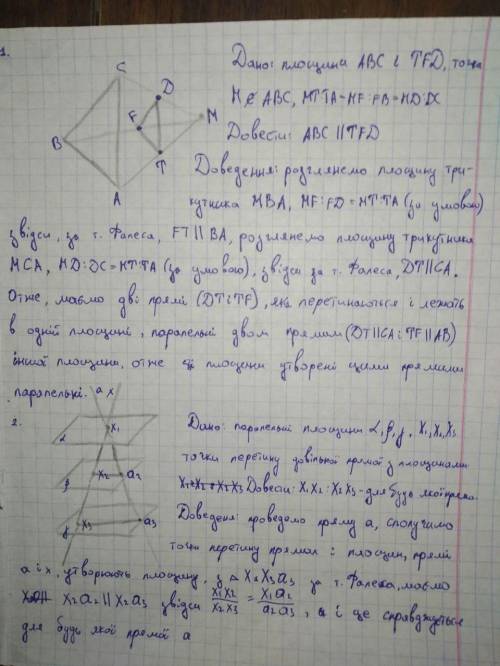 1.
C
D
F
M
B
T
A
Дано: площина ABC і TFD, точка
M ∉ ABC, MT:TA = MF:FB = MD:DC
Довести: ABC || TFD
Доведення: розглянемо площину три-
кутника MBA, MF:FD = MT:TA (за умовою)
звідси, за т. Фалеса, FT || BA, розглянемо площину трикутника
MCA, MD:DC = MT:TA (за умовою), звідси за т. Фалеса, DT || CA.
Отже, маємо дві прямі (DT і TF), які перетинаються і лежать
в одній площині, паралельні двом прямим (DT || CA і TF || AB)
іншої площини, отже площини утворені цими прямими
паралельні.
2.
a x
α
x₁
β
x₂ a₂
γ
x₃ a₃
Дано: паралельні площини α, β, γ, x₁, x₂, x₃
точки перетину довільної прямої з площинами
Довести: x₁x₂ : x₂x₃ - для будь якої
Доведеня: проведемо пряму a, сполучимо
точки перетину прямих і площин, прямі
a і x, утворюють площину, з △ x₁x₃a₃ за т. Фалеса, маємо
x₂a₂ || x₃a₃ звідси x₁x₂/x₂x₃ = x₁a₂/a₂a₃, і це справджується
для будь якої прямої a